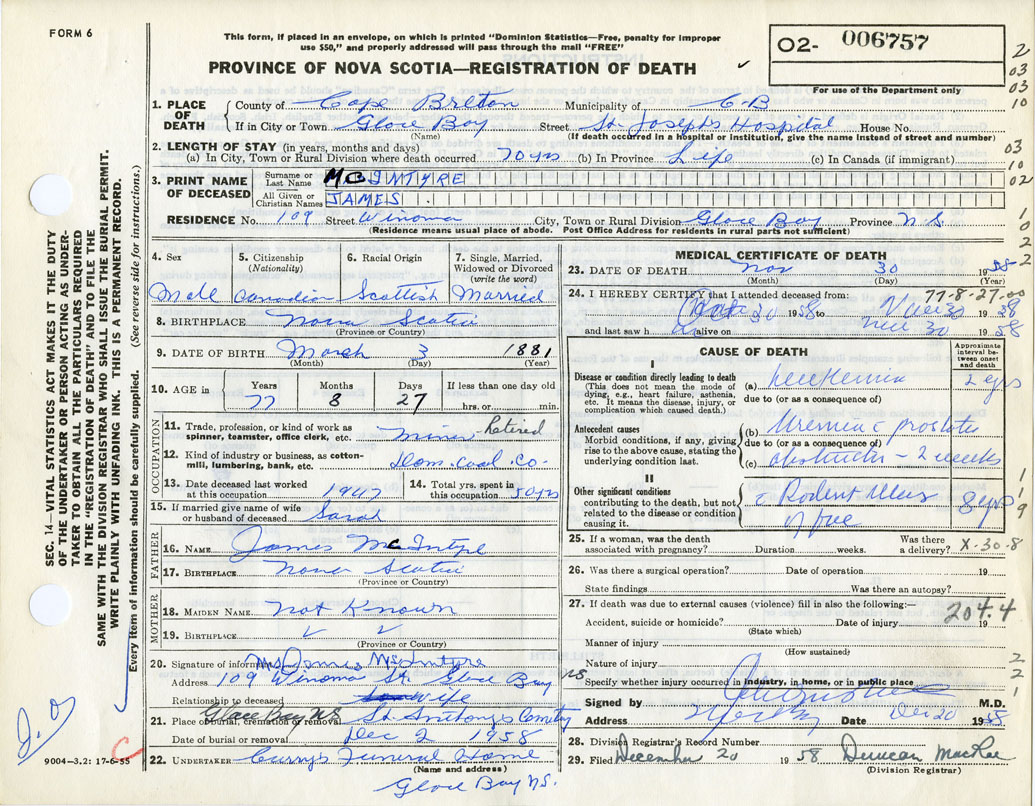 FORM 6
This form, if placed in an envelope, on which is printed "Dominion Statistics—Free, penalty for improper
use $50," and properly addressed will pass through the mail "FREE"
O2- 006757
PROVINCE OF NOVA SCOTIA—REGISTRATION OF DEATH
For use of the Department only
2
03
03
10
03
02
1
0
2
2
1. PLACE OF DEATH County of Cape Breton Municipality of C-B
If in City or Town Glace Bay Street St. Joseph's Hospital House No.
(Name) (If death occurred in a hospital or institution, give the name instead of street and number)
2. LENGTH OF STAY (in years, months and days)
(a) In City, Town or Rural Division where death occurred 70 yrs (b) In Province Life (c) In Canada (if immigrant)
3. PRINT NAME OF DECEASED Surname or Last Name McINTYRE
All Given or Christian Names JAMES
RESIDENCE No. 109 Street Winona City, Town or Rural Division Glace Bay Province N.S.
(Residence means usual place of abode. Post Office Address for residents in rural parts not sufficient)
4. Sex 5. Citizenship (Nationality) 6. Racial Origin 7. Single, Married, Widowed or Divorced (write the word)
Male Canadian Scottish Married
8. BIRTHPLACE Nova Scotia
(Province or Country)
9. DATE OF BIRTH March 3 1881
(Month) (Day) (Year)
10. AGE in Years Months Days If less than one day old
77 8 27 hrs. or min.
OCCUPATION
11. Trade, profession, or kind of work as spinner, teamster, office clerk, etc. miner Retired
12. Kind of industry or business, as cotton-mill, lumbering, bank, etc. Dom. Coal Co.
13. Date deceased last worked at this occupation 1947 14. Total yrs. spent in this occupation 50 yrs
15. If married give name of wife or husband of deceased Sarah
FATHER
16. NAME James McIntyre
17. BIRTHPLACE Nova Scotia
(Province or Country)
MOTHER
18. MAIDEN NAME Not Known
19. BIRTHPLACE
(Province or Country)
20. Signature of informant Mrs James McIntyre
Address 109 Winona St. Glace Bay NS
Relationship to deceased Wife
21. Place of burial, cremation or removal Glace Bay NS St. Anthonys Cemetry
Date of burial or removal Dec 2 1958
22. UNDERTAKER Curry's Funeral Home
(Name and address)
Glace Bay N.S.
MEDICAL CERTIFICATE OF DEATH
23. DATE OF DEATH Nov 30 1958
(Month) (Day) (Year)
77-8-27-00
24. I HEREBY CERTIFY that I attended deceased from:
Oct 30 1958 to Nov 30 1958
and last saw h alive on Nov 30 1958
CAUSE OF DEATH
Approximate interval between onset and death
I
Disease or condition directly leading to death
(This does not mean the mode of dying, e.g., heart failure, asthenia, etc. It means the disease, injury, or complication which caused death.)
(a) Leukemia 2 yrs
due to (or as a consequence of)
Antecedent causes
Morbid conditions, if any, giving rise to the above cause, stating the underlying condition last.
(b) Uremia c prostate
due to (or as a consequence of)
(c) obstruction - 2 weeks
II
Other significant conditions
contributing to the death, but not related to the disease or condition causing it.
c Rodent Ulcer of face 8 yrs
1
1
9
25. If a woman, was the death associated with pregnancy? Duration weeks. Was there a delivery? X-30-8
26. Was there a surgical operation? Date of operation 19
State findings Was there an autopsy?
27. If death was due to external causes (violence) fill in also the following:—
204.4
Accident, suicide or homicide? Date of injury 19
(State which)
Manner of injury
(How sustained)
Nature of injury
Specify whether injury occurred in industry, in home, or in public place
2
2
1
Signed by M.D.
Address Date Dec 20 1958
28. Division Registrar's Record Number
29. Filed December 20 1958 Duncan MacRae
(Division Registrar)
SEC. 14—VITAL STATISTICS ACT MAKES IT THE DUTY
OF THE UNDERTAKER OR PERSON ACTING AS UNDER-
TAKER TO OBTAIN ALL THE PARTICULARS REQUIRED
IN THE "REGISTRATION OF DEATH" AND TO FILE THE
SAME WITH THE DIVISION REGISTRAR WHO SHALL ISSUE THE BURIAL PERMIT.
WRITE PLAINLY WITH UNFADING INK. THIS IS A PERMANENT RECORD.
Every item of information should be carefully supplied. (See reverse side for instructions.)
9004-3.2: 17-6-55
C